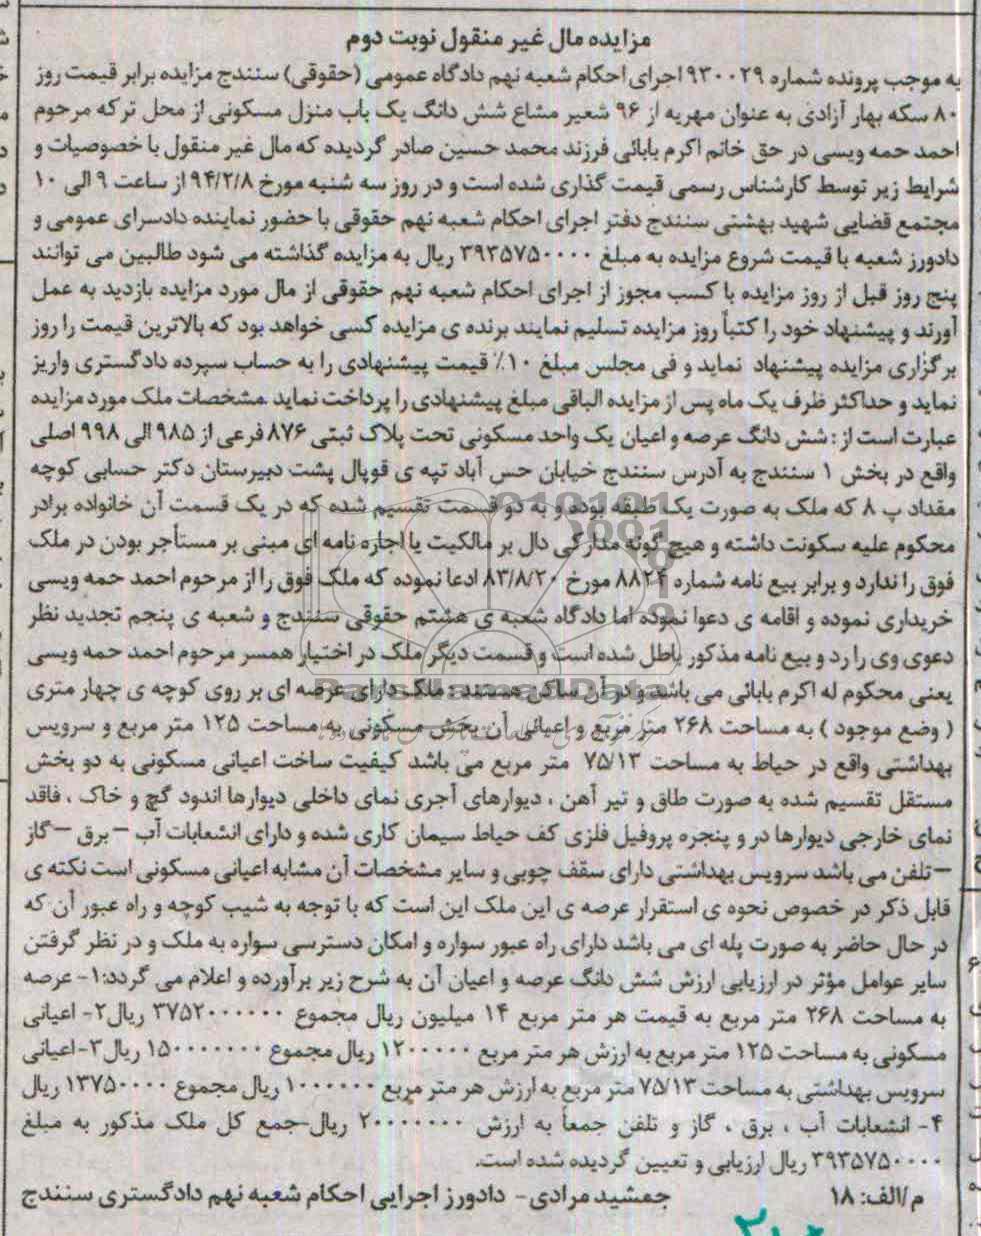 مزایده مال غیر منقول نوبت دوم
به موجب پرونده شماره ۹۳۰۰۲۹ اجرای احکام شعبه نهم دادگاه عمومی (حقوقی) سنندج مزایده برابر قیمت روز
۸۰ سکه بهار آزادی به عنوان مهریه از ۹۶ شعیر مشاع شش دانگ یک باب منزل مسکونی از محل ترکه مرحوم
احمد حمه ویسی در حق خانم اکرم بابائی فرزند محمد حسین صادر گردیده که مال غیر منقول با خصوصیات و
شرایط زیر توسط کارشناس رسمی قیمت گذاری شده است و در روز سه شنبه مورخ ۹۴/۲/۸ از ساعت ۹ الی ۱۰
مجتمع قضایی شهید بهشتی سنندج دفتر اجرای احکام شعبه نهم حقوقی با حضور نماینده دادسرای عمومی و
دادورز شعبه با قیمت شروع مزایده به مبلغ ۳۹۳۵۷۵۰۰۰۰ ریال به مزایده گذاشته می شود طالبین می توانند
پنج روز قبل از روز مزایده با کسب مجوز از اجرای احکام شعبه نهم حقوقی از مال مورد مزایده بازدید به عمل
آورند و پیشنهاد خود را کتباً روز مزایده تسلیم نمایند برنده ی مزایده کسی خواهد بود که بالاترین قیمت را روز
برگزاری مزایده پیشنهاد نماید و فی مجلس مبلغ ۱۰٪ قیمت پیشنهادی را به حساب سپرده دادگستری واریز
نماید و حداکثر ظرف یک ماه پس از مزایده الباقی مبلغ پیشنهادی را پرداخت نماید .مشخصات ملک مورد مزایده
عبارت است از : شش دانگ عرصه و اعیان یک واحد مسکونی تحت پلاک ثبتی ۸۷۶ فرعی از ۹۸۵ الی ۹۹۸ اصلی
واقع در بخش ۱ سنندج به آدرس سنندج خیابان حس آباد تپه ی قوپال پشت دبیرستان دکتر حسابی کوچه
مقداد پ ۸ که ملک به صورت یک طبقه بوده و به دو قسمت تقسیم شده که در یک قسمت آن خانواده برادر
محکوم علیه سکونت داشته و هیچ گونه مدارکی دال بر مالکیت یا اجاره نامه ای مبنی بر مستأجر بودن در ملک
فوق را ندارد و برابر بیع نامه شماره ۸۸۲۴ مورخ ۸۳/۸/۲۰ ادعا نموده که ملک فوق را از مرحوم احمد حمه ویسی
خریداری نموده و اقامه ی دعوا نموده اما دادگاه شعبه ی هشتم حقوقی سنندج و شعبه ی پنجم تجدید نظر
دعوی وی را رد و بیع نامه مذکور باطل شده است و قسمت دیگر ملک در اختیار همسر مرحوم احمد حمه ویسی
یعنی محکوم له اکرم بابائی می باشد و در آن ساکن هستند . ملک دارای عرصه ای بر روی کوچه ی چهار متری
( وضع موجود ) به مساحت ۲۶۸ متر مربع و اعیانی آن بخش مسکونی به مساحت ۱۲۵ متر مربع و سرویس
بهداشتی واقع در حیاط به مساحت ۷۵/۱۳ متر مربع می باشد کیفیت ساخت اعیانی مسکونی به دو بخش
مستقل تقسیم شده به صورت طاق و تیر آهن ، دیوارهای آجری نمای داخلی دیوارها اندود گچ و خاک ، فاقد
نمای خارجی دیوارها در و پنجره پروفیل فلزی کف حیاط سیمان کاری شده و دارای انشعابات آب – برق – گاز
– تلفن می باشد سرویس بهداشتی دارای سقف چوبی و سایر مشخصات آن مشابه اعیانی مسکونی است نکته ی
قابل ذکر در خصوص نحوه ی استقرار عرصه ی این ملک این است که با توجه به شیب کوچه و راه عبور آن که
در حال حاضر به صورت پله ای می باشد دارای راه عبور سواره و امکان دسترسی سواره به ملک و در نظر گرفتن
سایر عوامل مؤثر در ارزیابی ارزش شش دانگ عرصه و اعیان آن به شرح زیر برآورده و اعلام می گردد:۱- عرصه
به مساحت ۲۶۸ متر مربع به قیمت هر متر مربع ۱۴ میلیون ریال مجموع ۳۷۵۲۰۰۰۰۰۰ ریال ۲- اعیانی
مسکونی به مساحت ۱۲۵ متر مربع به ارزش هر متر مربع ۱۲۰۰۰۰۰ ریال مجموع ۱۵۰۰۰۰۰۰۰ ریال ۳- اعیانی
سرویس بهداشتی به مساحت ۷۵/۱۳ متر مربع به ارزش هر متر مربع ۱۰۰۰۰۰۰ ریال مجموع ۱۳۷۵۰۰۰۰ ریال
۴- انشعابات آب ، برق ، گاز و تلفن جمعاً به ارزش ۲۰۰۰۰۰۰۰ ریال-جمع کل ملک مذکور به مبلغ
۳۹۳۵۷۵۰۰۰۰ ریال ارزیابی و تعیین گردیده شده است.
م/الف: ۱۸ جمشید مرادی- دادورز اجرایی احکام شعبه نهم دادگستری سنندج
ParsNamadData